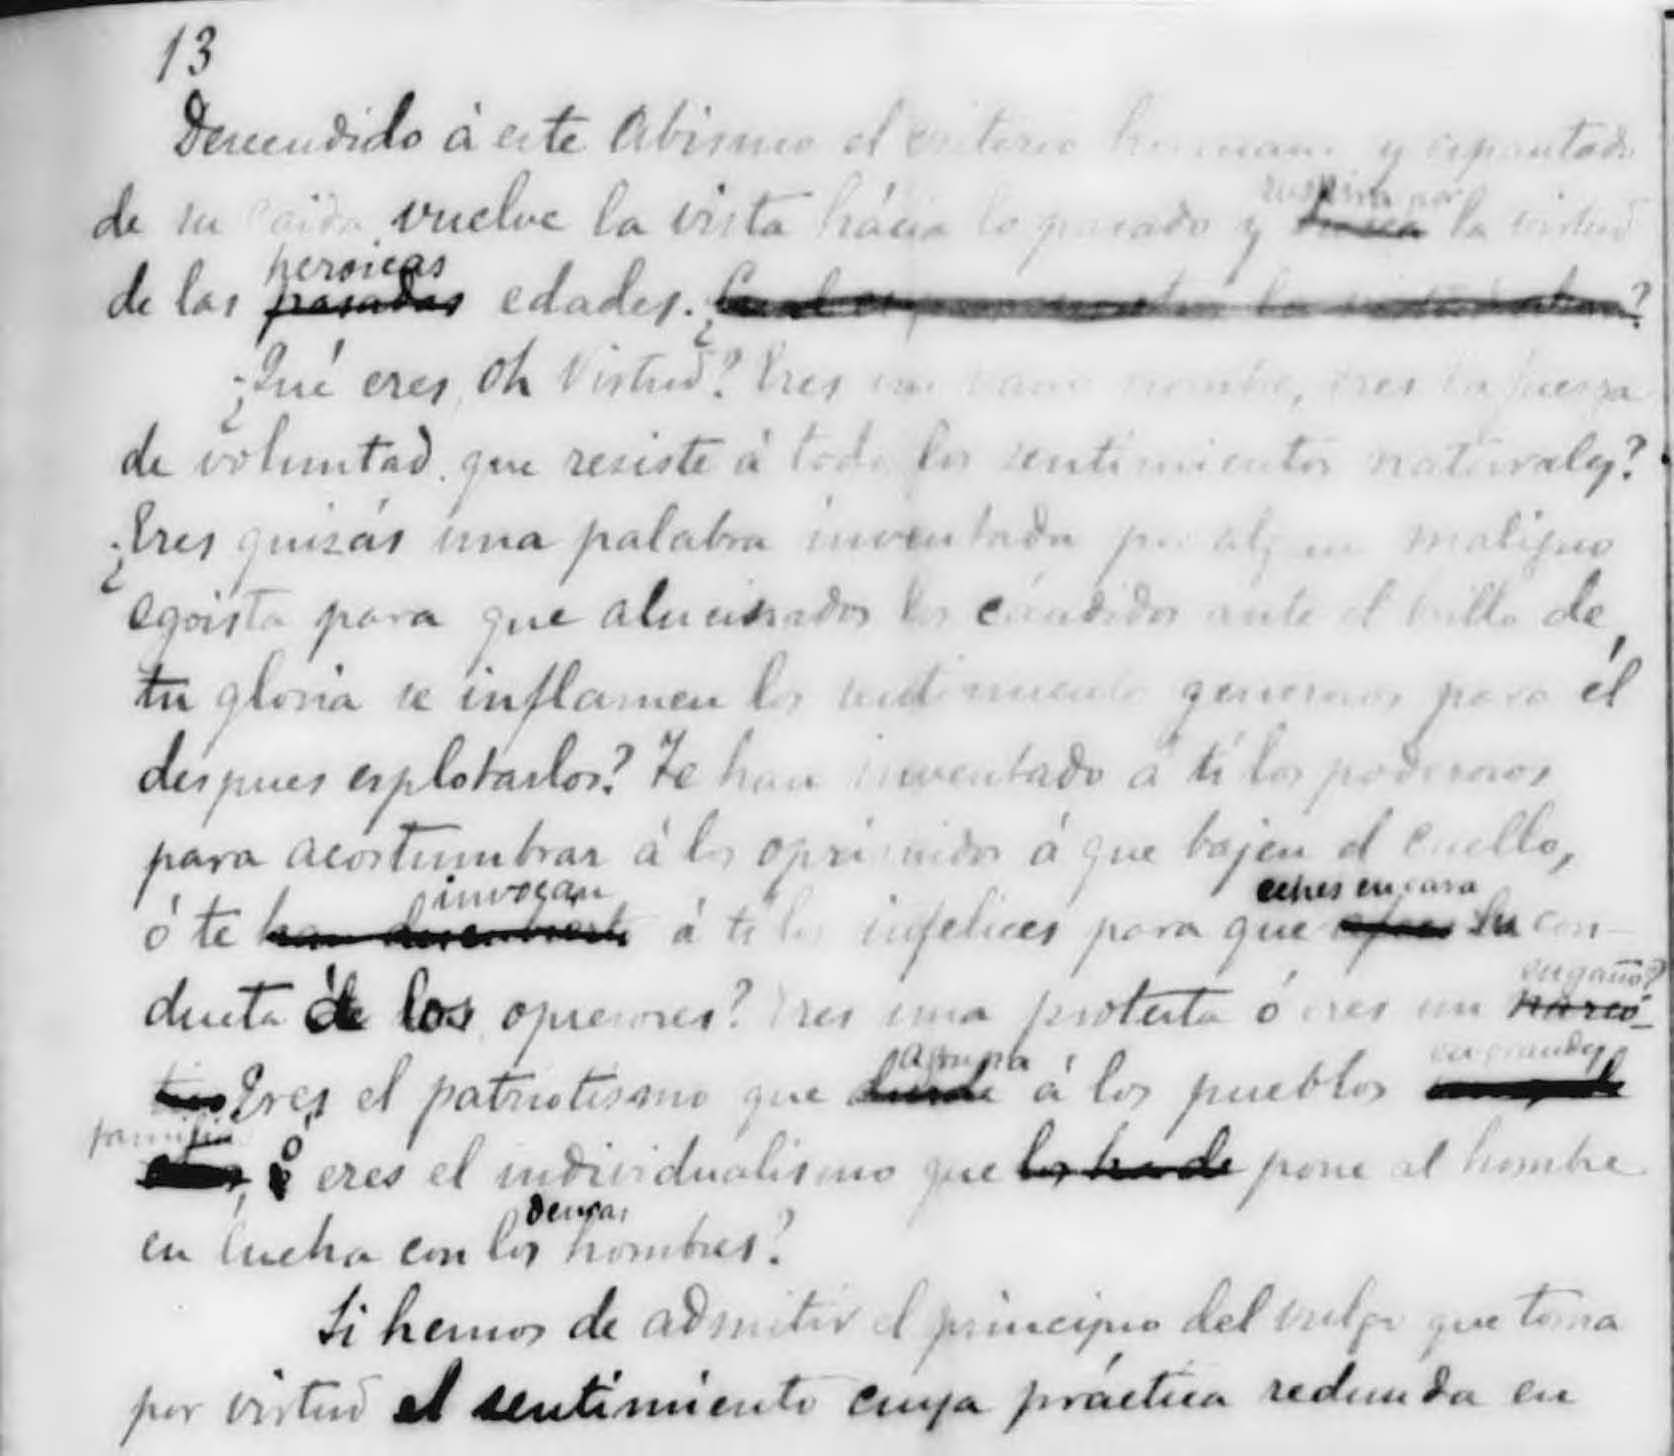 13
Descendido á este Abismo el criterio humano y espantado
suspira por
de su caida vuelve la vista hácia lo pasado y busca la virtud
heroicas
de las pasadas edades. ¿ la ?
¿Qué eres, Oh Virtud? Eres un vano nombre, eres la fuerza
de voluntad que resiste á todo los sentimientos naturales?
¿Eres quizás una palabra inventada por algun maligno
egoista para que alucinados los cándidos ante el brillo de
tu gloria se inflamen los sentimientos generosos para él
despues esplotarlos? Te han inventado á tí los poderosos
para acostumbrar á los oprimidos á que bajen el cuello,
invocan
eches en cara
ó te han á tí los infelices para que la con-
engaño?
ducta á los opresores? Eres una protesta ó eres un narcó-
agrupa
en grandes
tico Eres el patriotismo que á los pueblos
familias
ó eres el individualismo que los ha de pone al hombre
demas
en lucha con los hombres?
Si hemos de admitir el principio del vulgo que toma
por virtud el sentimiento cuya práctica redunda en